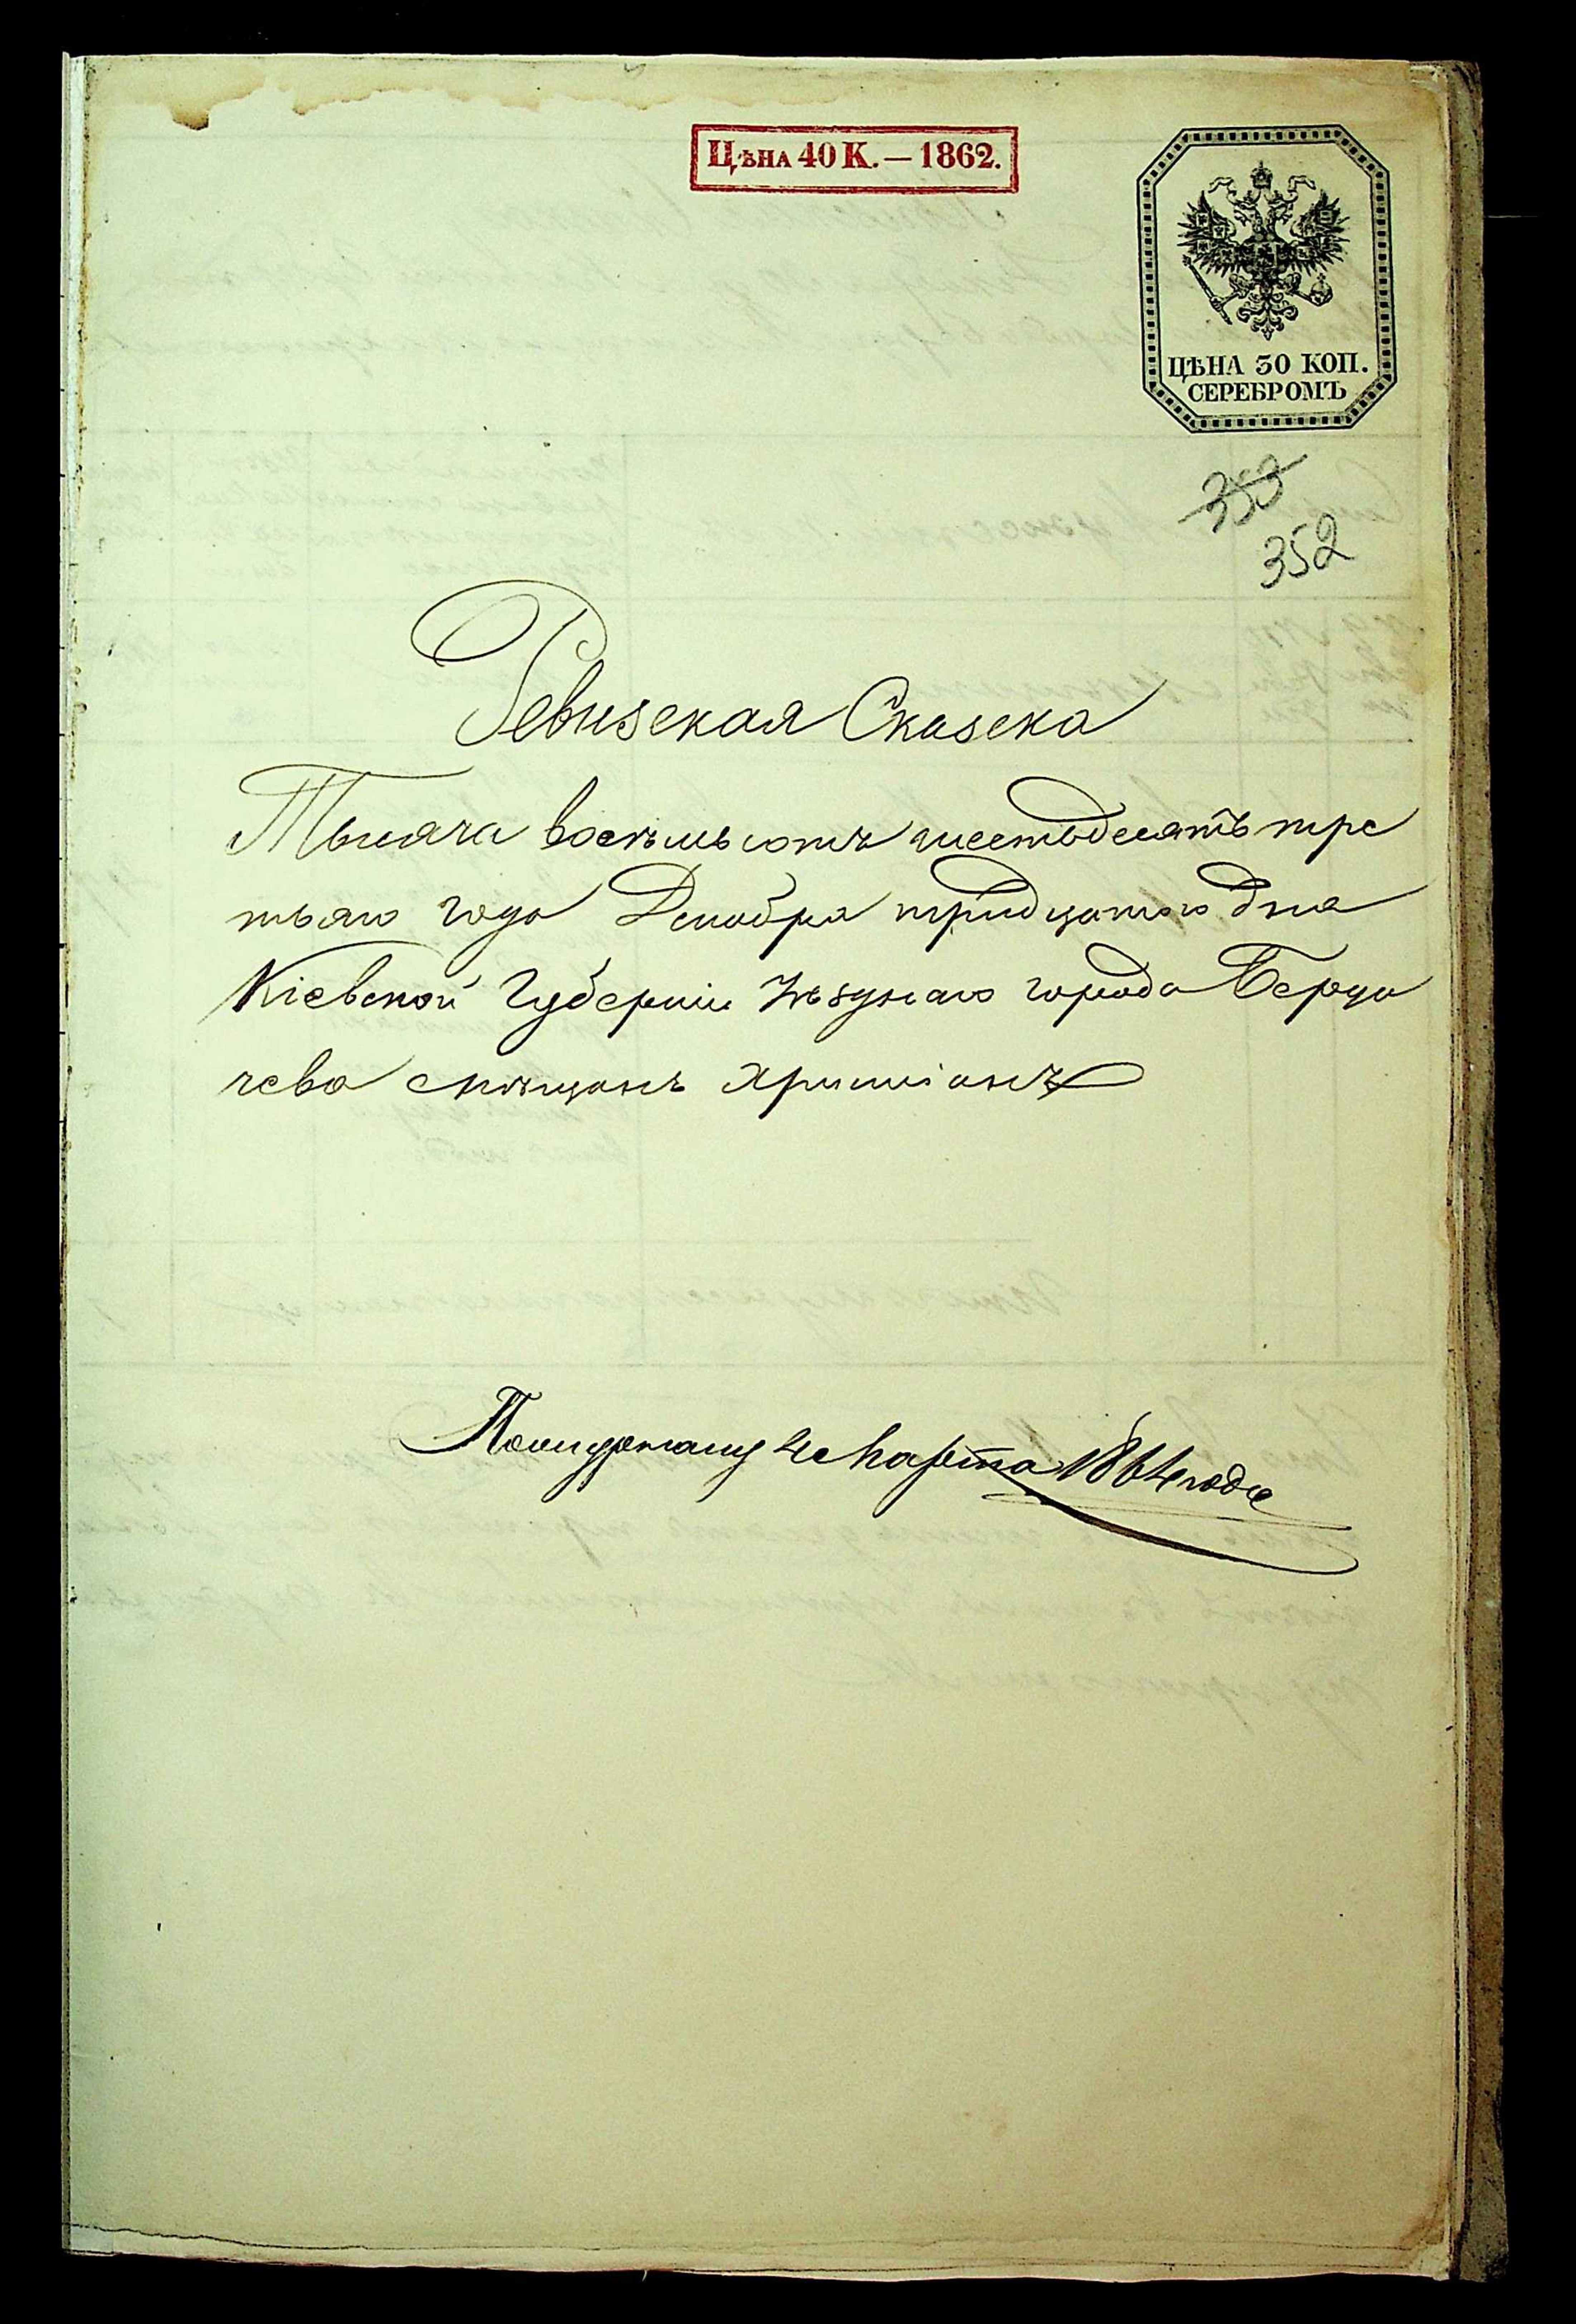 ЦѢНА 40 К. — 1862.
ЦѢНА 30 КОП.
СЕРЕБРОМЪ
353
352
Ревизская Сказска
Тысяча восемьсотъ шестьдесятъ тре
тьяго года Декабря тридцатого дня
Кіевской Губерніи Уѣзднаго города Берди
чева смѣщанъ христіанъ
4 Марта 1864 года